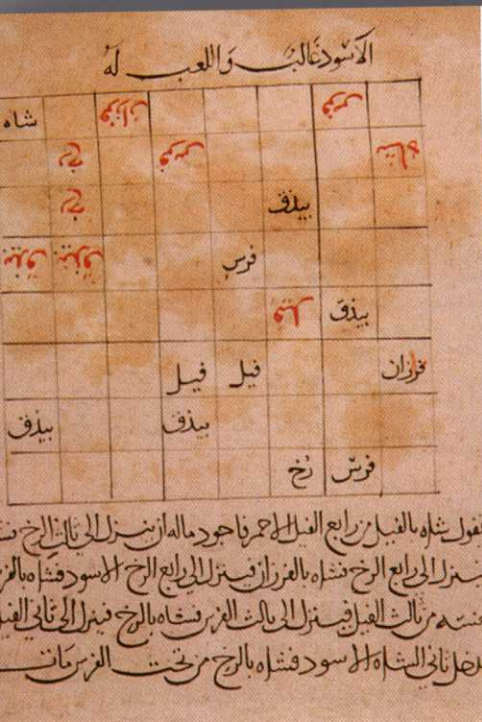 الاسود غالب واللعب له
فرس فرزان شاه
شاه فرس رخ
بيذق رخ
فرس بيذق بيذق
بيذق فيل
فرزان فيل فيل
بيذق بيذق
فرس رخ
نقول شاه بالفيل من رابع الفيل الاحمر فاجود ماله ان ينزل الى ثالث الرخ
ينزل الى رابع الرخ فنشاه بالفرزان فينزل الى رابع الرخ الاسود فنشاه
من ثالث الفيل فينزل الى ثالث الفرس فنشاه بالرخ فينزل الى ثاني الفيل
يدخل ثاني الشاه الاسود فنشاه بالرخ من تحت الفرس مات